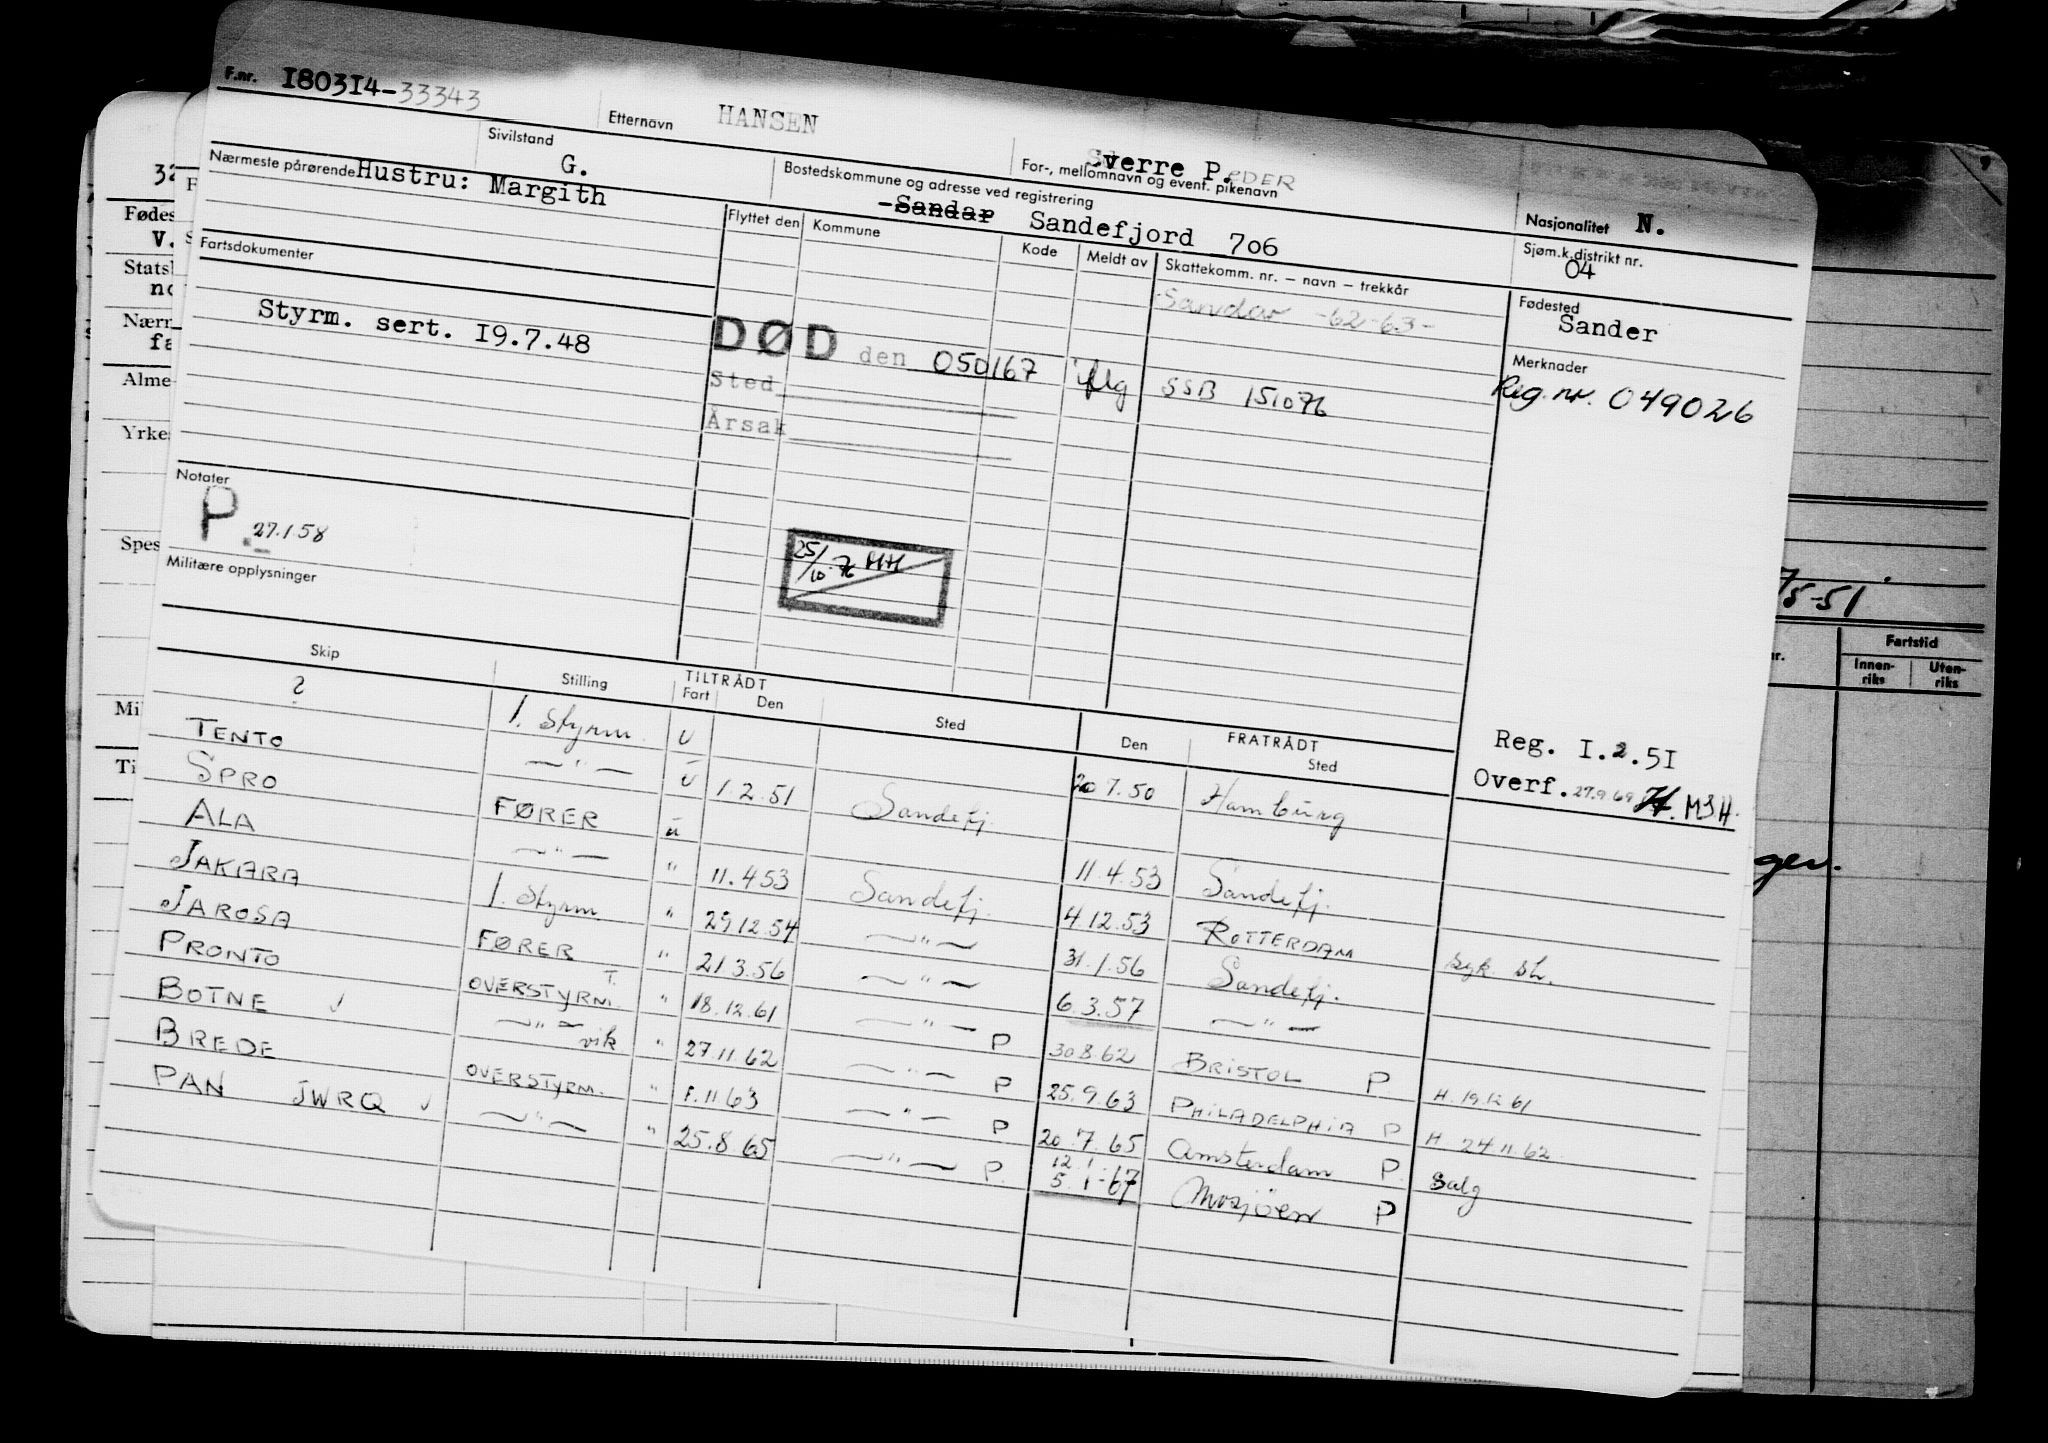 F.nr. I803I4-33343
Etternavn HANSEN
For-, mellomnavn og event. pikenavn Sverre P.EDER
Nasjonalitet N.
Sivilstand G.
Nærmeste pårørende Hustru: Margith
Bostedskommune og adresse ved registrering
-Sandar Sandefjord 706
Sjøm.k.distrikt nr. 04
Fartsdokumenter
Styrm. sert. I9.7.48
Flyttet den Kommune Kode Meldt av Skattekomm. nr. – navn – trekkår
Sandar -62-63-
Fødested
Sander
DØD den 050167 SSB 151076
Sted
Årsak
Merknader
Reg. nr. 049026
Notater
P. 27.1.58
25/10-76 MH
Militære opplysninger
Skip Stilling TILTRÅDT Fart Den Sted FRATRÅDT Den Sted
Reg. I.2.5I
Overf. 27.9.69 M.S.H.
? 1. Styrm. U 20.7.50 Hamburg
TENTO —"— U 1.2.51 Sandefj.
SPRO FØRER U 11.4.53 Sandefj.
ALA —"— " 11.4.53 Sandefj. 4.12.53 ROTTERDAM syk. sh.
JAKARA 1. Styrm " 29.12.54 —"— 31.1.56 Sandefj.
JAROSA FØRER " 21.3.56 —"— 6.3.57 —"—
PRONTO OVERSTYRM. T. " 18.12.61 —"— P 30.8.62 BRISTOL P. H. 19.12.61
BOTNE —"— vik " 27.11.62 —"— P 25.9.63 PHILADELPHIA P H. 24.11.62
BREDE OVERSTYRM. " F.11.63 —"— P 20.7.65 Amsterdam P. Salg
PAN JWRQ —"— " 25.8.65 —"— P. 12.1 5.1-67 Mosjöen P
32
F
Fødes
V.
Stats
no
Nærm
fa
Alme
Yrke
Spes
Mil
Ti
75-51
nr.
Fartstid
Innen-riks Uten-riks
ger.